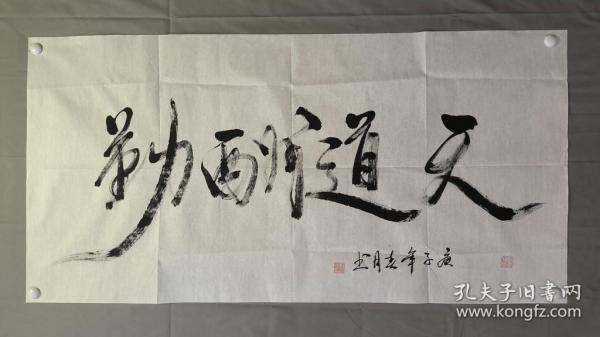 天道酬勤
庚子年吉月书
孔夫子旧书网
www.kongfz.com